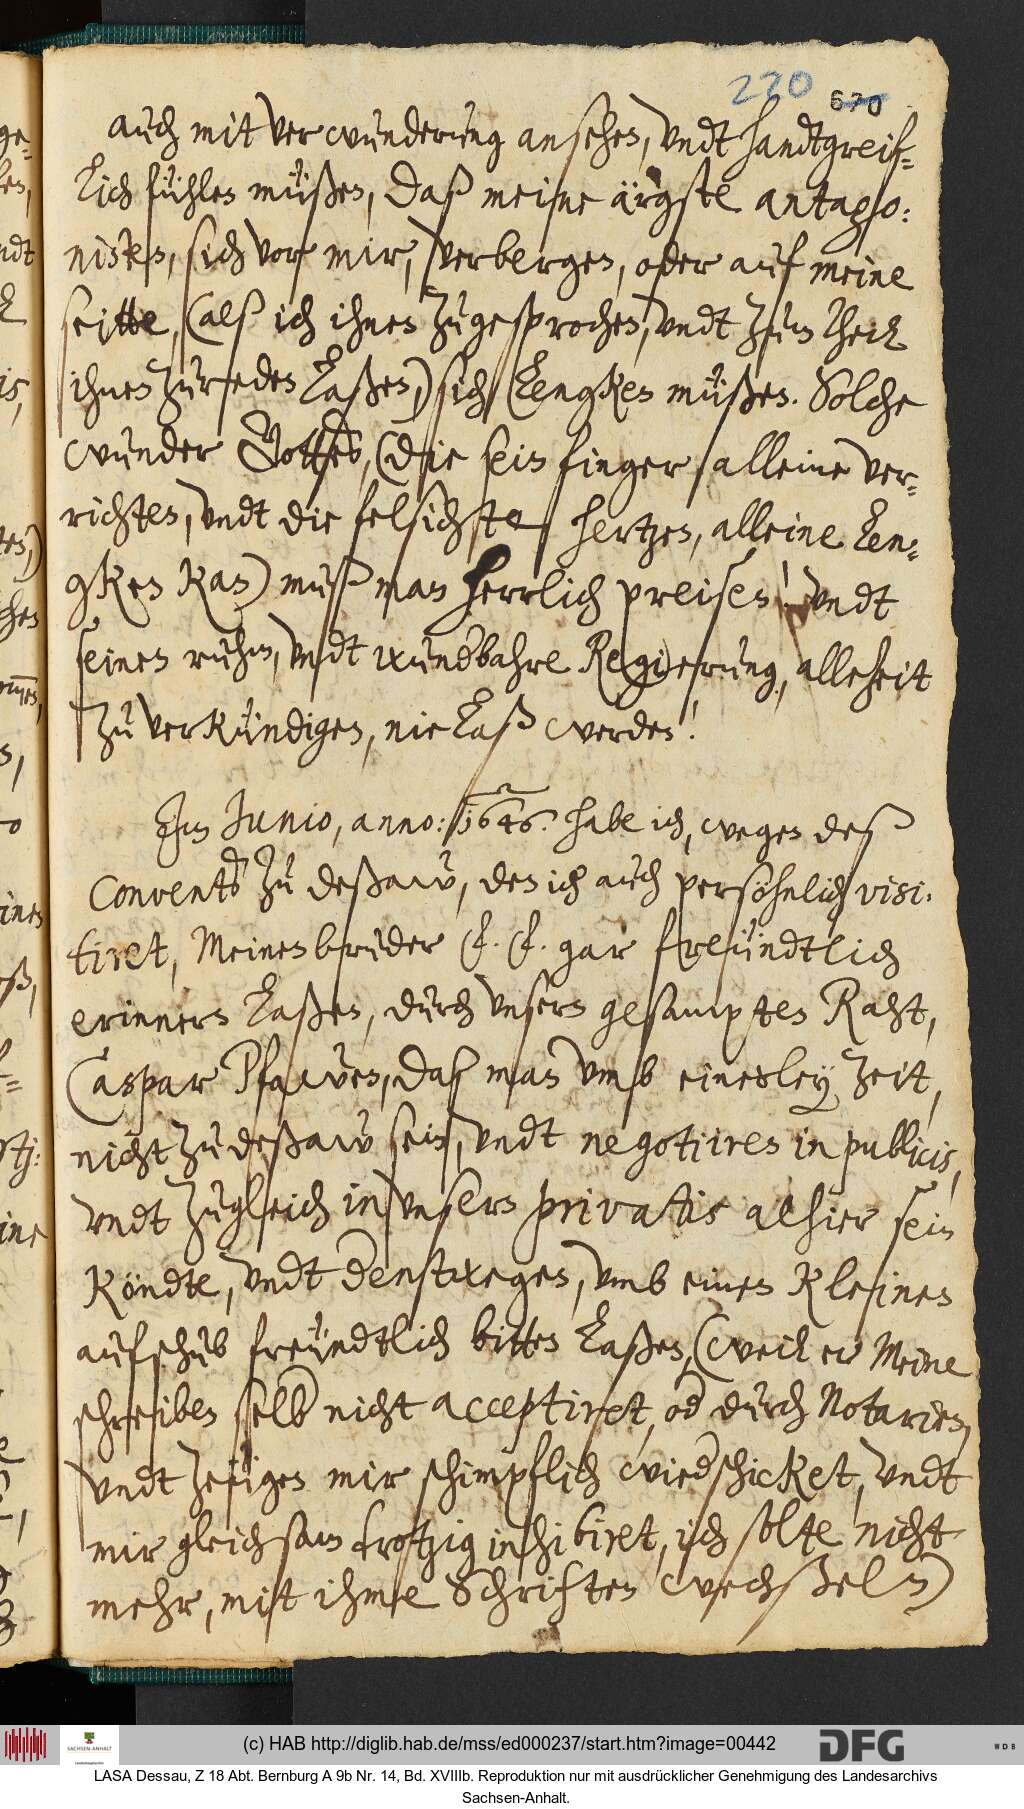 220 670
auch mit verwunderung ansehen, undt handtgreif-
lich fühlen müßen, daß meine ärgste antago:
nisten, sich vor mir, verbergen, oder auf meine
seitte, (alß ich ihnen zugesprochen, undt zum theil
ihnen zureden laßen,) sich lengken müßen. Solche
wunder Gottes, (die sein finger alleine ver-
richten, undt die felsichsten hertzen, alleine len-
gken kan) muß man herrlich preisen! undt
seinen ruhm, undt wunderbahre Regierung, allezeit
zu verkündigen, nie laß werden!
Im Junio, anno: 1646. habe ich, wegen deß
Convents zu deßaw, den ich auch persöhnlich visi-
tiret, Meinen bruder f. f. gar freündtlich
erinnern laßen, durch unsern gesampten Raht,
Caspar Pfawen, daß man umb einerley zeit,
nicht zu deßaw sein, undt negotiiren in publicis,
undt zugleich in unsern privatis alhier sein
köndte, undt denstwegen, umb einen kleinen
aufschub freündtlich bitten laßen, (weil er Meine
schreiben selb nicht acceptiret, od durch Notarien,
undt zeügen mir schimpflich wiedschicket, undt
mir gleichsam trotzig inhibiret, ich solte nicht
mehr, mit ihme Schriften wechßeln)
(c) HAB http://diglib.hab.de/mss/ed000237/start.htm?image=00442
SACHSEN-ANHALT
DFG
WDB
LASA Dessau, Z 18 Abt. Bernburg A 9b Nr. 14, Bd. XVIIIb. Reproduktion nur mit ausdrücklicher Genehmigung des Landesarchivs
Sachsen-Anhalt.